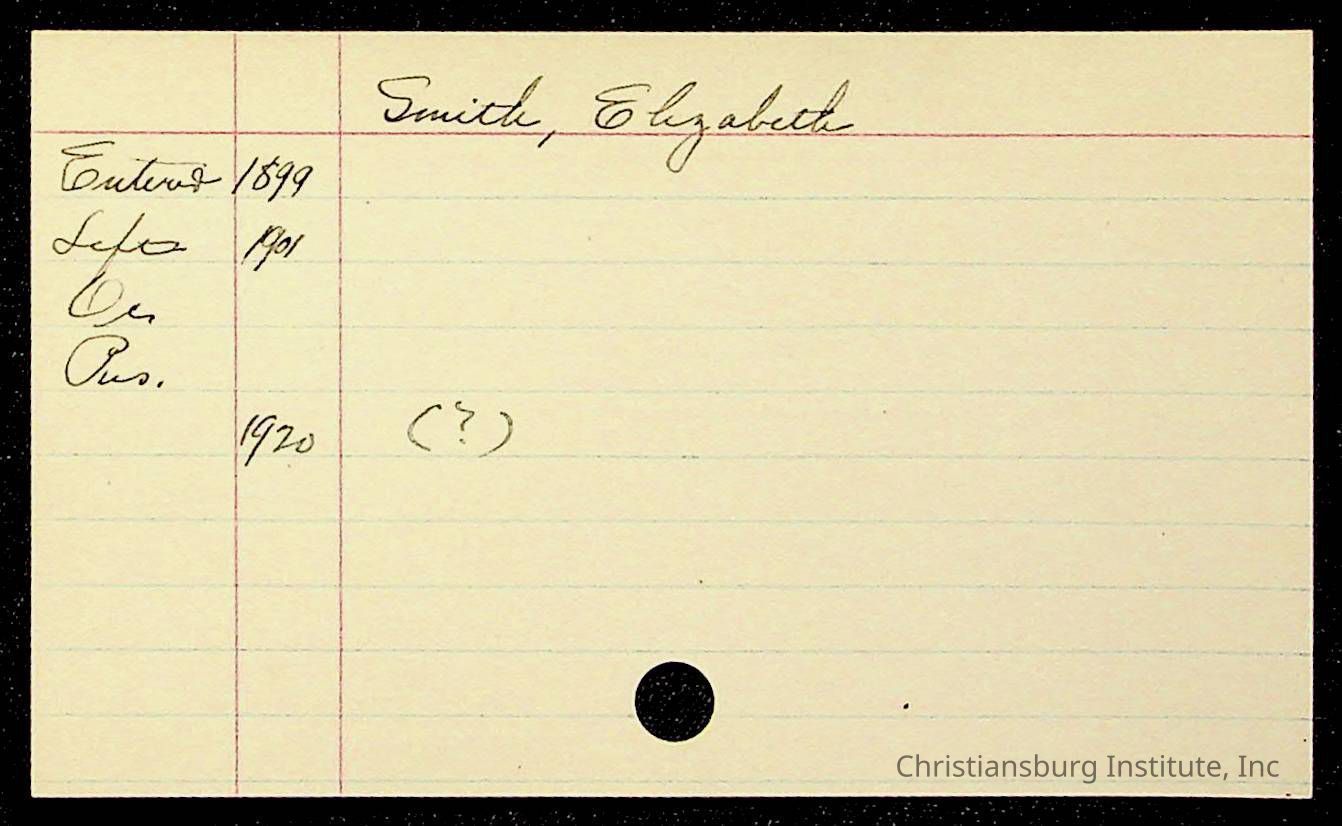 Smith, Elizabeth
Entered 1899
Left 1901
Oc.
Pres.
1920 (?)
Christiansburg Institute, Inc